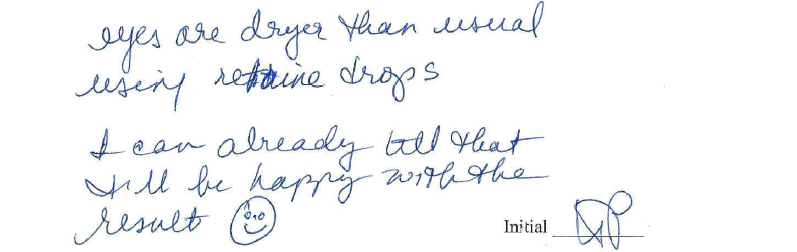 eyes are dryer than usual
using retaine drops
I can already tell that
I'll be happy with the
result
Initial